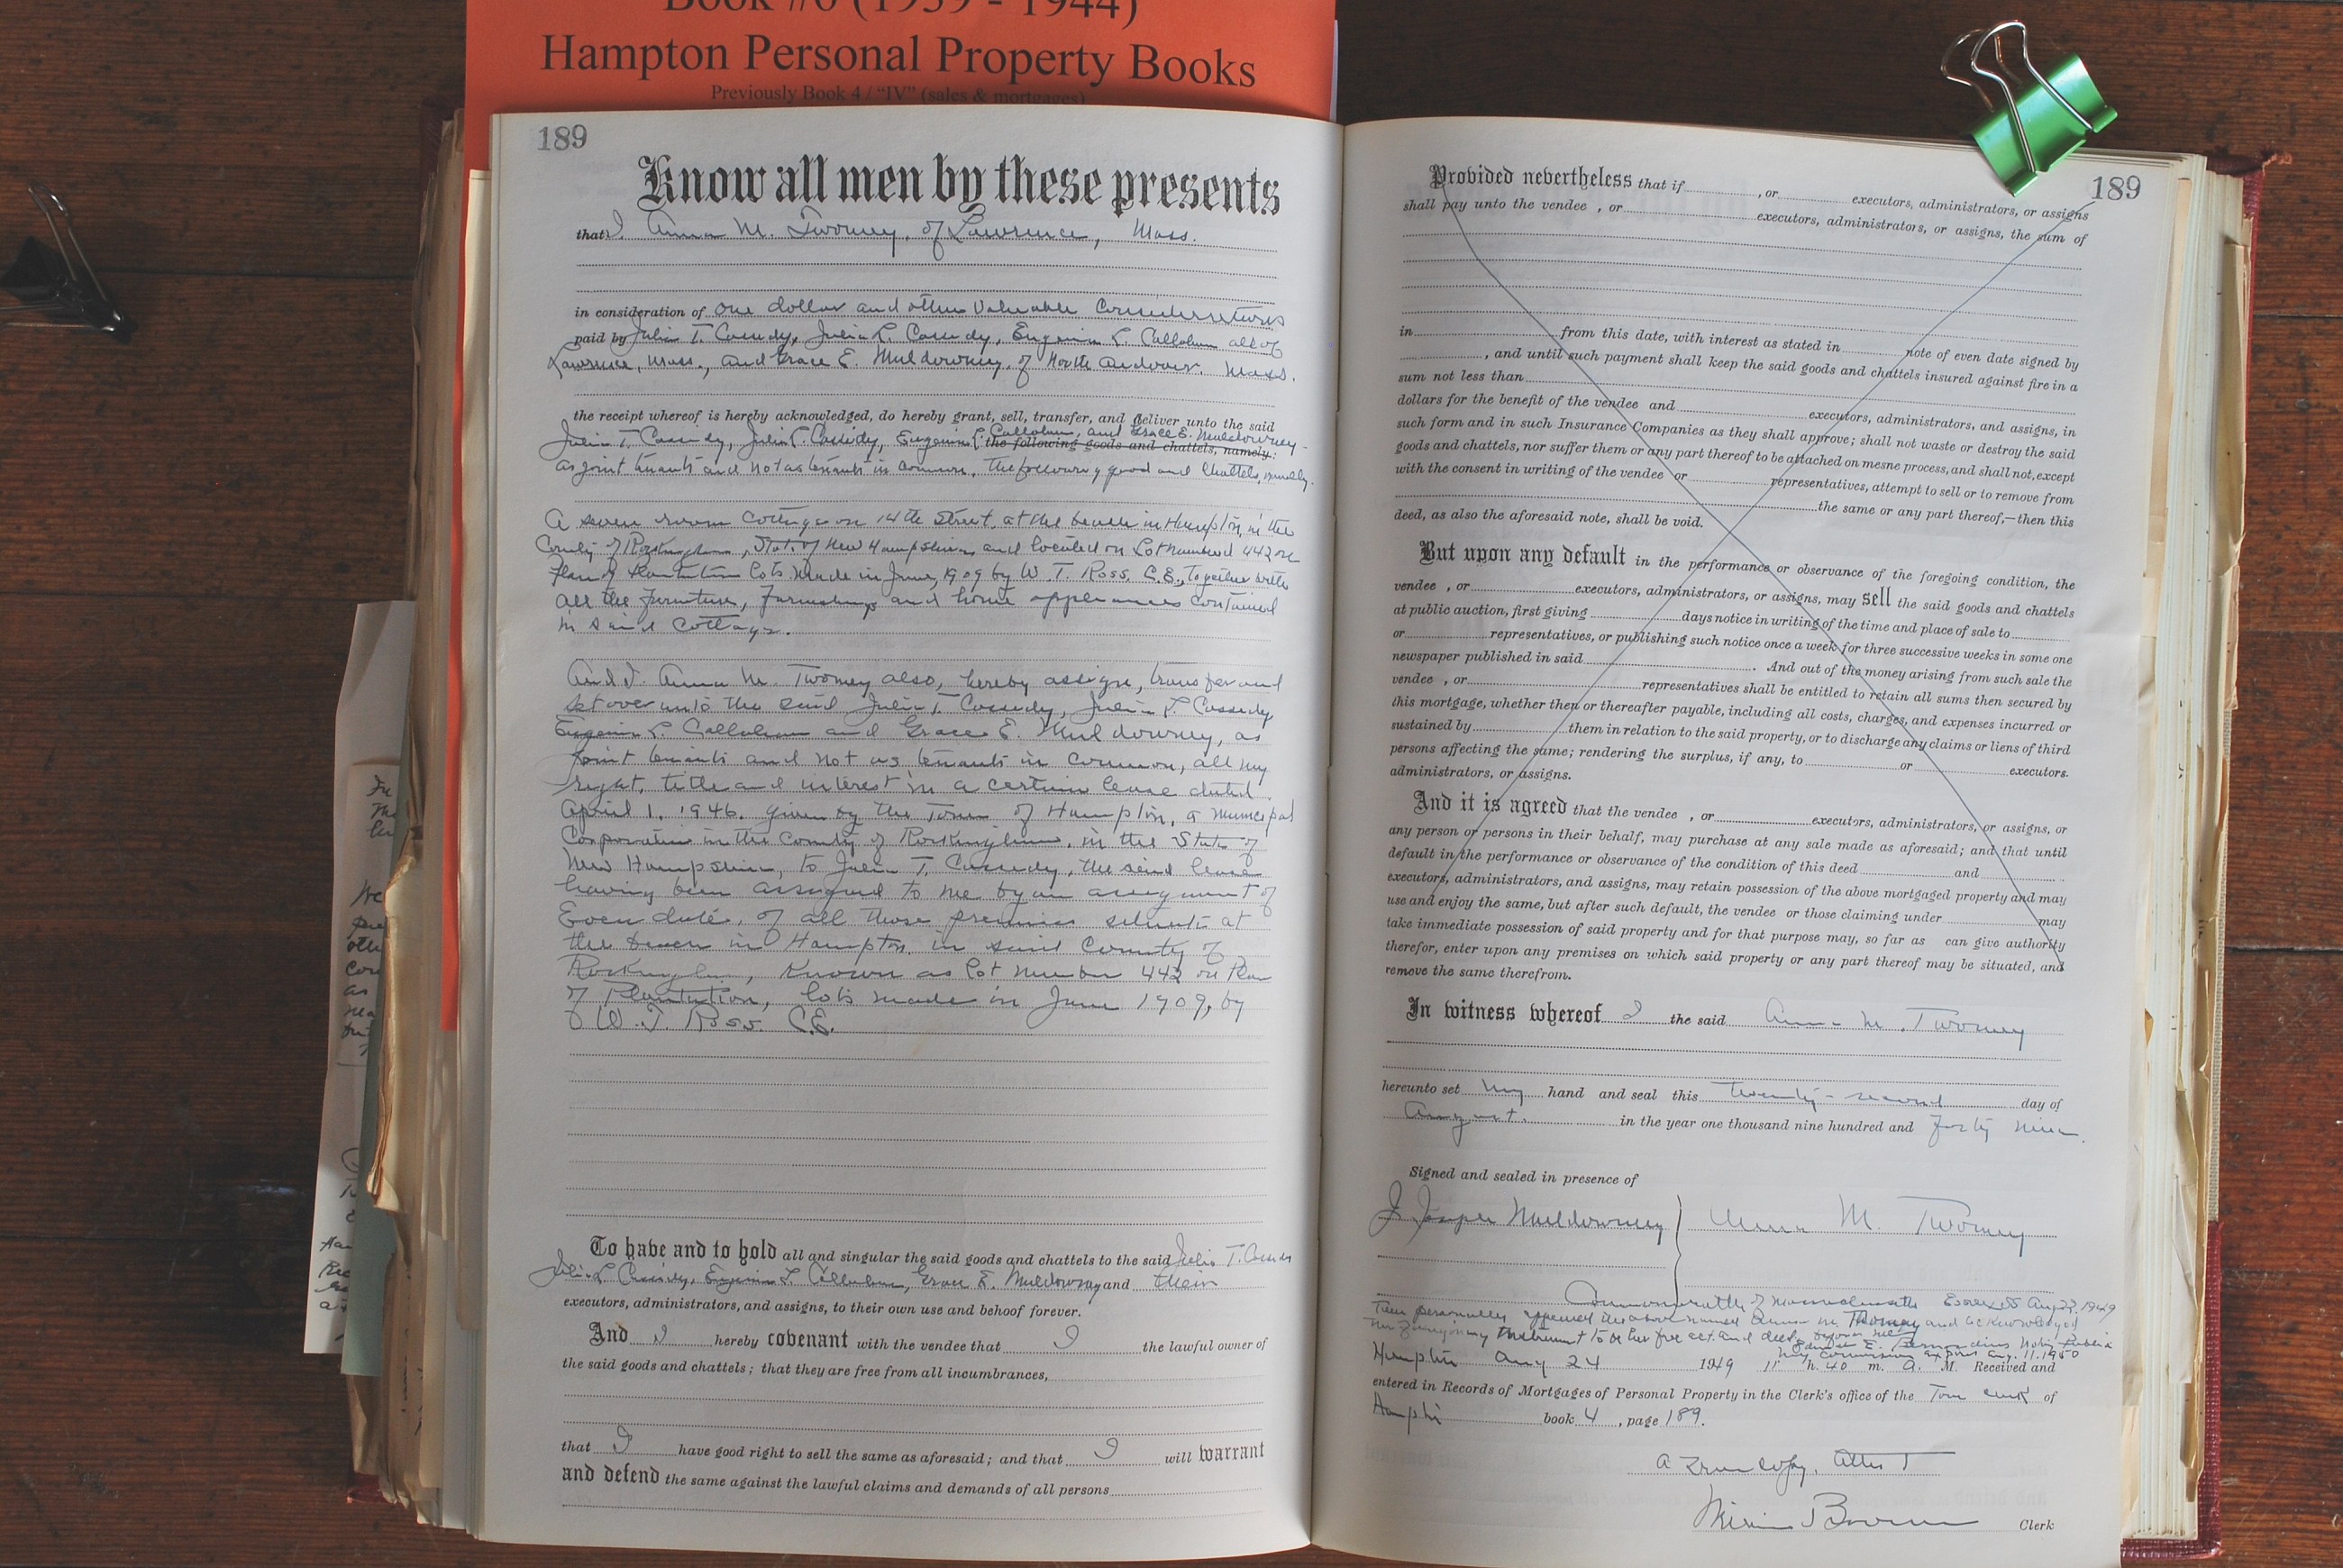 Book #6 (1939 - 1944)
Hampton Personal Property Books
Previously Book 4 / "IV" (sales & mortgages)
189
Know all men by these presents
that I, Anna M. Twomey, of Lawrence, Mass.
in consideration of one dollar and other valuable considerations
paid by Julia T. Cassidy, Julia L. Cassidy, Eugenia L. Callahan all of
Lawrence, Mass., and Grace E. Muldowney, of North Andover, Mass.
the receipt whereof is hereby acknowledged, do hereby grant, sell, transfer, and deliver unto the said
Callahan, and Grace E. Muldowney
Julia T. Cassidy, Julia L. Cassidy, Eugenia L. the following goods and chattels, namely:
as joint tenants and not as tenants in common, the following good and chattels, namely.
A seven room cottage on 14th Street, at the beach in Hampton, in the
County of Rockingham, State of New Hampshire and located on Lot numbered 442 on
Plan of Plantation lots made in June, 1909 by W. T. Ross, C.E., together with
all the furniture, furnishings and home appliances contained
in said cottage.
And I, Anna M. Twomey also, hereby assign, transfer and
set over unto the said Julia T. Cassidy, Julia L. Cassidy
Eugenia L. Callahan and Grace E. Muldowney, as
joint tenants and not as tenants in common, all my
right, title and interest in a certain lease dated
April 1, 1946, given by the Town of Hampton, a municipal
Corporation in the County of Rockingham, in the State of
New Hampshire, to Julia T. Cassidy, the said lease
having been assigned to me by an assignment of
Even date, of all those premises situate at
the beach in Hampton, in said County of
Rockingham, known as lot number 442 on Plan
of Plantation, lots made in June 1909, by
W. T. Ross. C.E.
To have and to hold all and singular the said goods and chattels to the said Julia T. Cassidy
Julia L. Cassidy, Eugenia L. Callahan, Grace E. Muldowney and their
executors, administrators, and assigns, to their own use and behoof forever.
And I hereby covenant with the vendee that I the lawful owner of
the said goods and chattels; that they are free from all incumbrances,
that I have good right to sell the same as aforesaid; and that I will warrant
and defend the same against the lawful claims and demands of all persons
189
Provided nevertheless that if , or executors, administrators, or assigns
shall pay unto the vendee , or executors, administrators, or assigns, the sum of
in from this date, with interest as stated in note of even date signed by
, and until such payment shall keep the said goods and chattels insured against fire in a
sum not less than
dollars for the benefit of the vendee and executors, administrators, and assigns, in
such form and in such Insurance Companies as they shall approve; shall not waste or destroy the said
goods and chattels, nor suffer them or any part thereof to be attached on mesne process, and shall not, except
with the consent in writing of the vendee or representatives, attempt to sell or to remove from
the same or any part thereof,—then this
deed, as also the aforesaid note, shall be void.
But upon any default in the performance or observance of the foregoing condition, the
vendee , or executors, administrators, or assigns, may sell the said goods and chattels
at public auction, first giving days notice in writing of the time and place of sale to
or representatives, or publishing such notice once a week for three successive weeks in some one
newspaper published in said . And out of the money arising from such sale the
vendee , or representatives shall be entitled to retain all sums then secured by
this mortgage, whether then or thereafter payable, including all costs, charges, and expenses incurred or
sustained by them in relation to the said property, or to discharge any claims or liens of third
persons affecting the same; rendering the surplus, if any, to or executors.
administrators, or assigns.
And it is agreed that the vendee , or executors, administrators, or assigns, or
any person or persons in their behalf, may purchase at any sale made as aforesaid; and that until
default in the performance or observance of the condition of this deed and
executors, administrators, and assigns, may retain possession of the above mortgaged property and may
use and enjoy the same, but after such default, the vendee or those claiming under may
take immediate possession of said property and for that purpose may, so far as can give authority
therefor, enter upon any premises on which said property or any part thereof may be situated, and
remove the same therefrom.
In witness whereof I the said Anna M. Twomey
hereunto set my hand and seal this twenty-second day of
August in the year one thousand nine hundred and forty nine.
Signed and sealed in presence of
J. Joseph Muldowney Anna M. Twomey
Commonwealth of Massachusetts Essex SS Aug 22, 1949
Then personally appeared the above named Anna M. Twomey and acknowledged
the foregoing instrument to be her free act and deed, before me,
Notary Public
My commission expires Aug. 11. 1950
Hampton Aug 24 1949 11 h. 40 m. A. M. Received and
entered in Records of Mortgages of Personal Property in the Clerk's office of the Town Clerk of
Hampton book 4 , page 189.
A true copy, Attest
Clerk